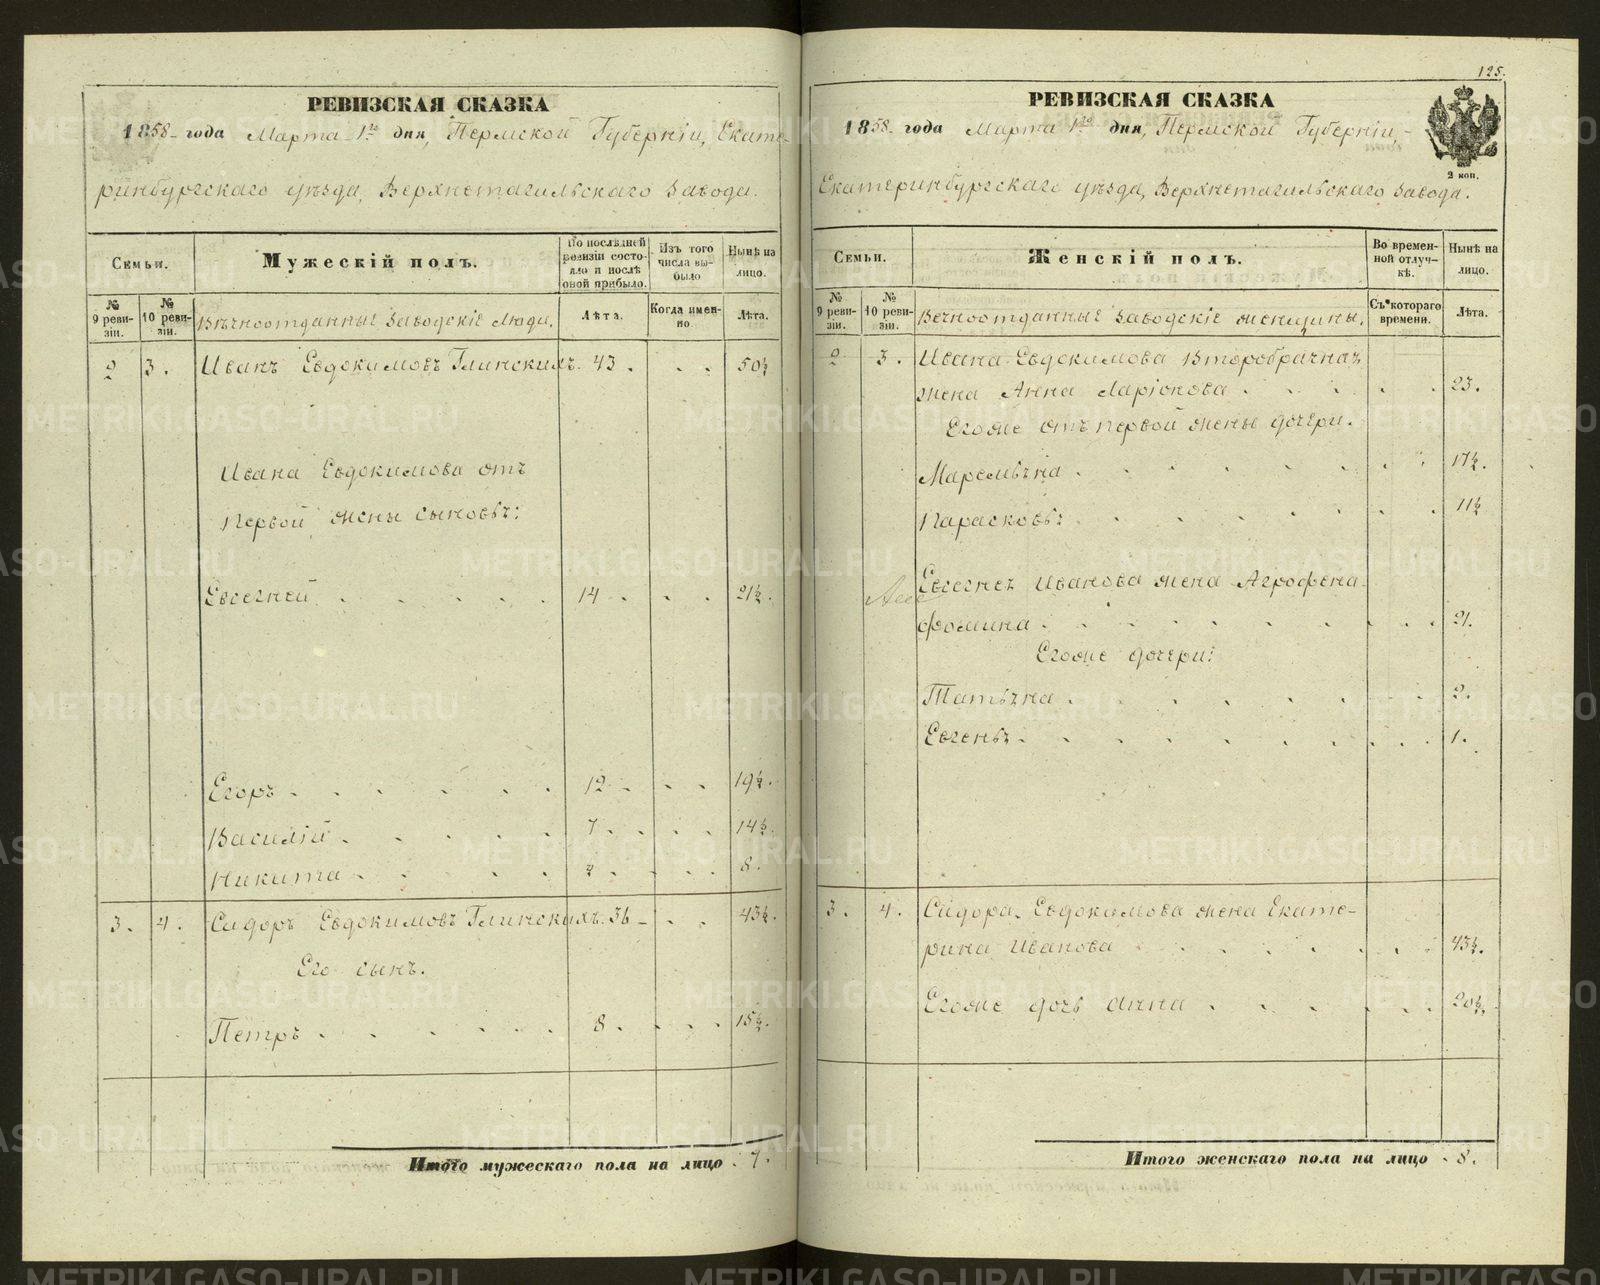 125.
РЕВИЗСКАЯ СКАЗКА
1858 года Марта 1го дня, Пермской Губерніи, Екате-
ринбургскаго уѣзда, Верхнетагильскаго Завода.
Семьи.
Мужескій полъ.
По послѣдней ревизіи состояло и послѣ оной прибыло.
Изъ того числа выбыло
Нынѣ на лицо.
№ 9 ревизіи.
№ 10 ревизіи.
Вѣчноотданныя Заводскіе Люди.
Лѣта.
Когда именно
Лѣта.
2 3. Иванъ Евдокимовъ Глинскихъ. 43. 50½
Ивана Евдокимова отъ
первой жены сыновья:
Евгеней 14 21½.
Егоръ 12 19½.
Василій 7 14½.
Никита 8.
3. 4. Сидоръ Евдокимовъ Глинскихъ. 36 43½.
Его сынъ.
Петръ 8. 15½.
Итого мужескаго пола на лицо 7.
РЕВИЗСКАЯ СКАЗКА
1858 года Марта 1го дня, Пермской Губерніи,
Екатеринбургскаго уѣзда, Верхнетагильскаго Завода.
2 коп.
Семьи.
Женскій полъ.
Во временной отлучкѣ.
Нынѣ на лицо.
№ 9 ревизіи.
№ 10 ревизіи.
Вечноотданныя Заводскіе женщины.
Съ котораго времени.
Лѣта.
2 3. Ивана Евдокимова Второбрачная
жена Анна Ларіонова 23.
Егоже отъ первой жены дочери.
Маремьяна 17½.
Парасковья 11½
Евгенея Иванова жена Агрофена
Фомина 21.
Егоже дочери:
Татьяна 2.
Евгенья 1.
3. 4. Сидора Евдокимова жена Екате-
рина Иванова 43½.
Егоже дочь Анна 20½.
Итого женскаго пола на лицо 8.
METRIKI.GASO-URAL.RU